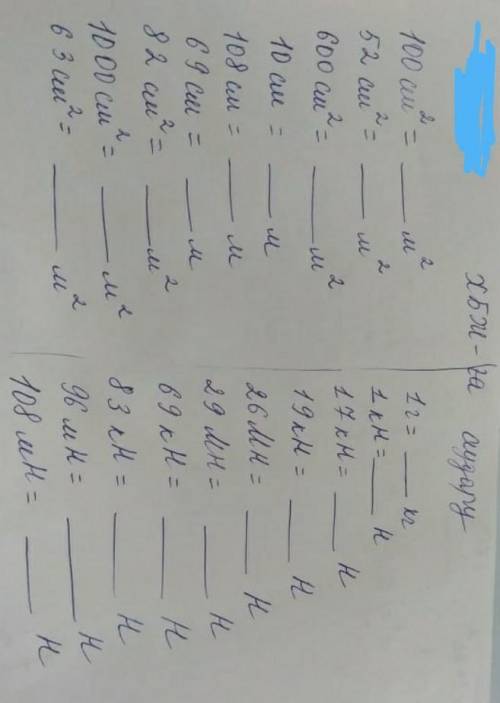 ХБЖ-ға аудару
100 см² = ___ м²
52 см² = ___ м²
600 см² = ___ м²
10 см = ___ м
108 см = ___ м
69 см = ___ м
82 см² = ___ м²
1000 см² = ___ м²
63 см² = ___ м²
1 г = ___ кг
1 кН = ___ Н
17 кН = ___ Н
19 кН = ___ Н
26 МН = ___ Н
29 МН = ___ Н
69 кН = ___ Н
83 кН = ___ Н
96 мН = ___ Н
108 мН = ___ Н